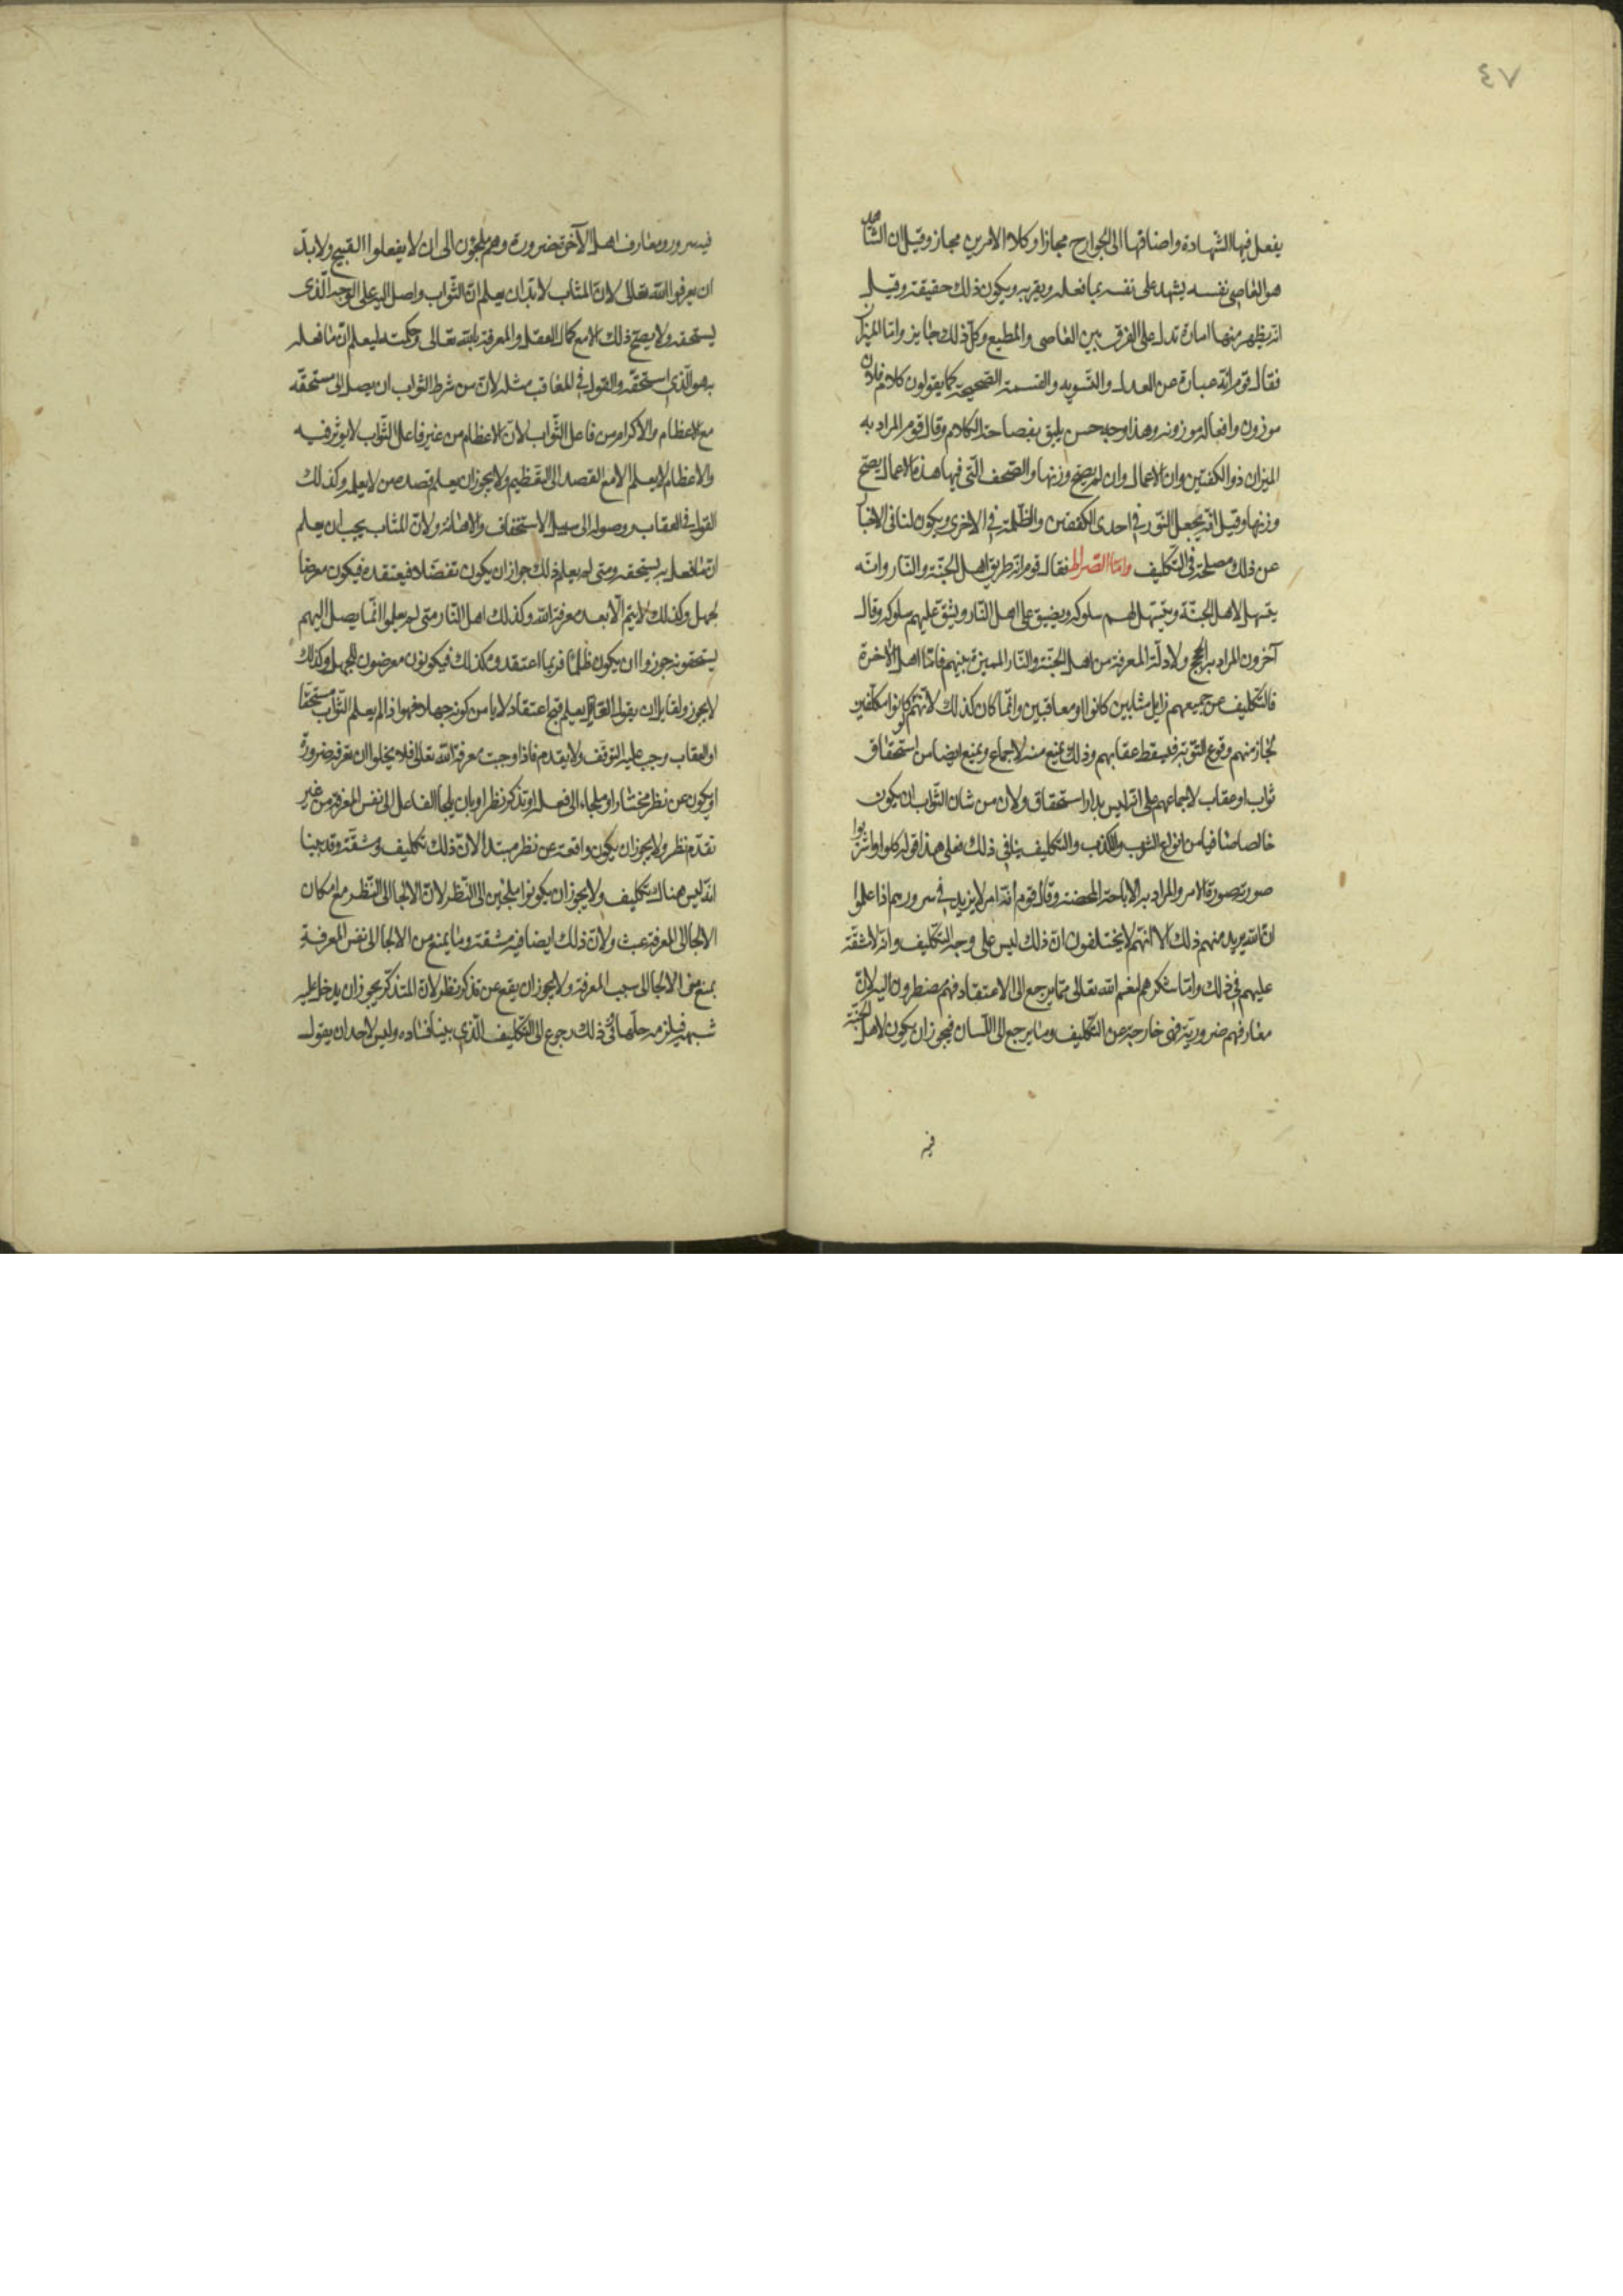 ٧٤
يفعل فيها الشهادة واضافتها الى الجوارح مجازا وكلا الامرين مجاز وقيل ان الشاهد
هو العاصى نفسه يشهد على نفسه بما فعله ويقر به ويكون ذلك حقيقة وقيل
انه يظهر منها امارة تدل على الفرق بين العاصى والمطيع وكل ذلك جايز واما الميزان
فقال قوم انه عبارة عن العدل والتسويه والقسمة الصحيحة كما يقولون كلام فلان
موزون وافعاله موزونه وهذا وجه حسن يليق بفصاحة الكلام وقال قوم المراد به
الميزان ذو الكفتين وان الاعمال وان لم يصح وزنها والصحف التى فيها هذه الاعمال يصح
وزنها وقيل انه يجعل النور فى احدى الكفتين والظلمة فى الاخرى ويكون لنا فى الاخبار
عن ذلك مصلحة فى التكليف واما الصراط فقال قوم انه طريق اهل الجنة والنار وانه
يتسهل لاهل الجنة ويتسهل لهم سلوكه ويضيق على اهل النار ويشق عليهم سلوكه وقال
آخرون المراد به الحجج ولادلة المعرفة من اهل الجنة والنار المميزة بينهم فاما اهل الاخرة
فالتكليف عن جميعهم زايل مثابين كانوا او معاقبين وانما كان كذلك لانهم لو كانوا مكلفين
لجاز منهم وقوع التوبة فيسقط عقابهم وذلك يمنع منه الاجماع ويمنع ايضا من استحقاق
ثواب او عقاب لاجماعهم على انه ليس بدار استحقاق ولان من شان الثواب ان يكون
خالصا صافيا من انواع الشوب والكذب والتكليف ينافى ذلك فعلى هذا قوله كلوا واشربوا
صورته صورة الامر والمراد به الاباحة المحضة وقال قوم انه امر لا يزيد فى سرورهم اذا علموا
ان الله يريد منهم ذلك الا انهم لا يختلفون ان ذلك ليس على وجه التكليف وانه لا مشقة
عليهم فى ذلك واما شكرهم لنعم الله تعالى مما يرجع الى الاعتقاد فهم مضطرون اليه لان
معارفهم ضرورية فهى خارجة عن التكليف وما يرجع الى اللسان فيجوز ان يكون لاهل الجنة
فيه
فيه سرور ومعارف اهل الآخرة ضرورة وهم ملجؤن الى ان لا يفعلوا القبيح ولا بد
ان يعرفوا الله تعالى لان المثاب لا بد ان يعلم ان الثواب واصل اليه على الوجه الذى
يستحقه ولا يصح ذلك الا مع كمال العقل والمعرفة بالله تعالى وحكمته ليعلم ان ما فعله
به هو الذى استحقه والقول فى المعاقب مثله لان من شرط الثواب ان يصل الى مستحقه
مع الاعظام والاكرام من فاعل الثواب لان الاعظام من غير فاعل الثواب لا يوثر فيه
والاعظام لا يعلم الا مع القصد الى التعظيم ولا يجوز ان يعلم قصده من لا يعلمه وكذلك
القول فى العقاب ووصوله الى سبيل الاستخفاف والاهانة ولان المثاب يجب ان يعلم
ان ما فعل به يستحقه ومتى لم يعلم ذلك جواز ان يكون تفضلا فيعتقده فيكون معرضا
لجهل وكذلك لا يتم الا بعد معرفة الله وكذلك اهل النار متى لم يعلموا انما يصل اليهم
يستحقونه جوزوا ان يكون ظلما فربما اعتقدوه كذلك فيكونون معرضون للجهل وكذلك
لا يجوز ولقايل ان يقول العاقل يعلم قبح اعتقاد لا يامن كونه جهلا فهو اذا لم يعلم الثواب مستحقا
او العقاب وجب عليه التوقف ولا يقدم فاذا وجبت معرفة الله تعالى فلا يخلوا ان تعرفه ضرورة
او يكون عن نظر مختار او ملجاء الى فعله او تذكر نظر او بان يلجأ الفاعل الى نفس المعرفة من غير
تقدم نظر ولا يجوز ان يكون واقعة عن نظر مبتدا لان ذلك تكليف ومشقة وقد بينا
انه ليس هناك تكليف ولا يجوز ان يكونوا ملجئين الى النظر لان الالجا الى النظر مع امكان
الالجا الى المعرفة عبث ولان ذلك ايضا فيه مشقة وما يمنع من الالجا الى نفس المعرفة
يمنع من الالجا الى سبب المعرفة ولا يجوز ان يقع عن تذكر نظر لان المتذكر يجوز ان يدخل عليه
شبهة فيلزمه حلها وفى ذلك رجوع الى التكليف الذى بينا فساده وليس لاحد ان يقول